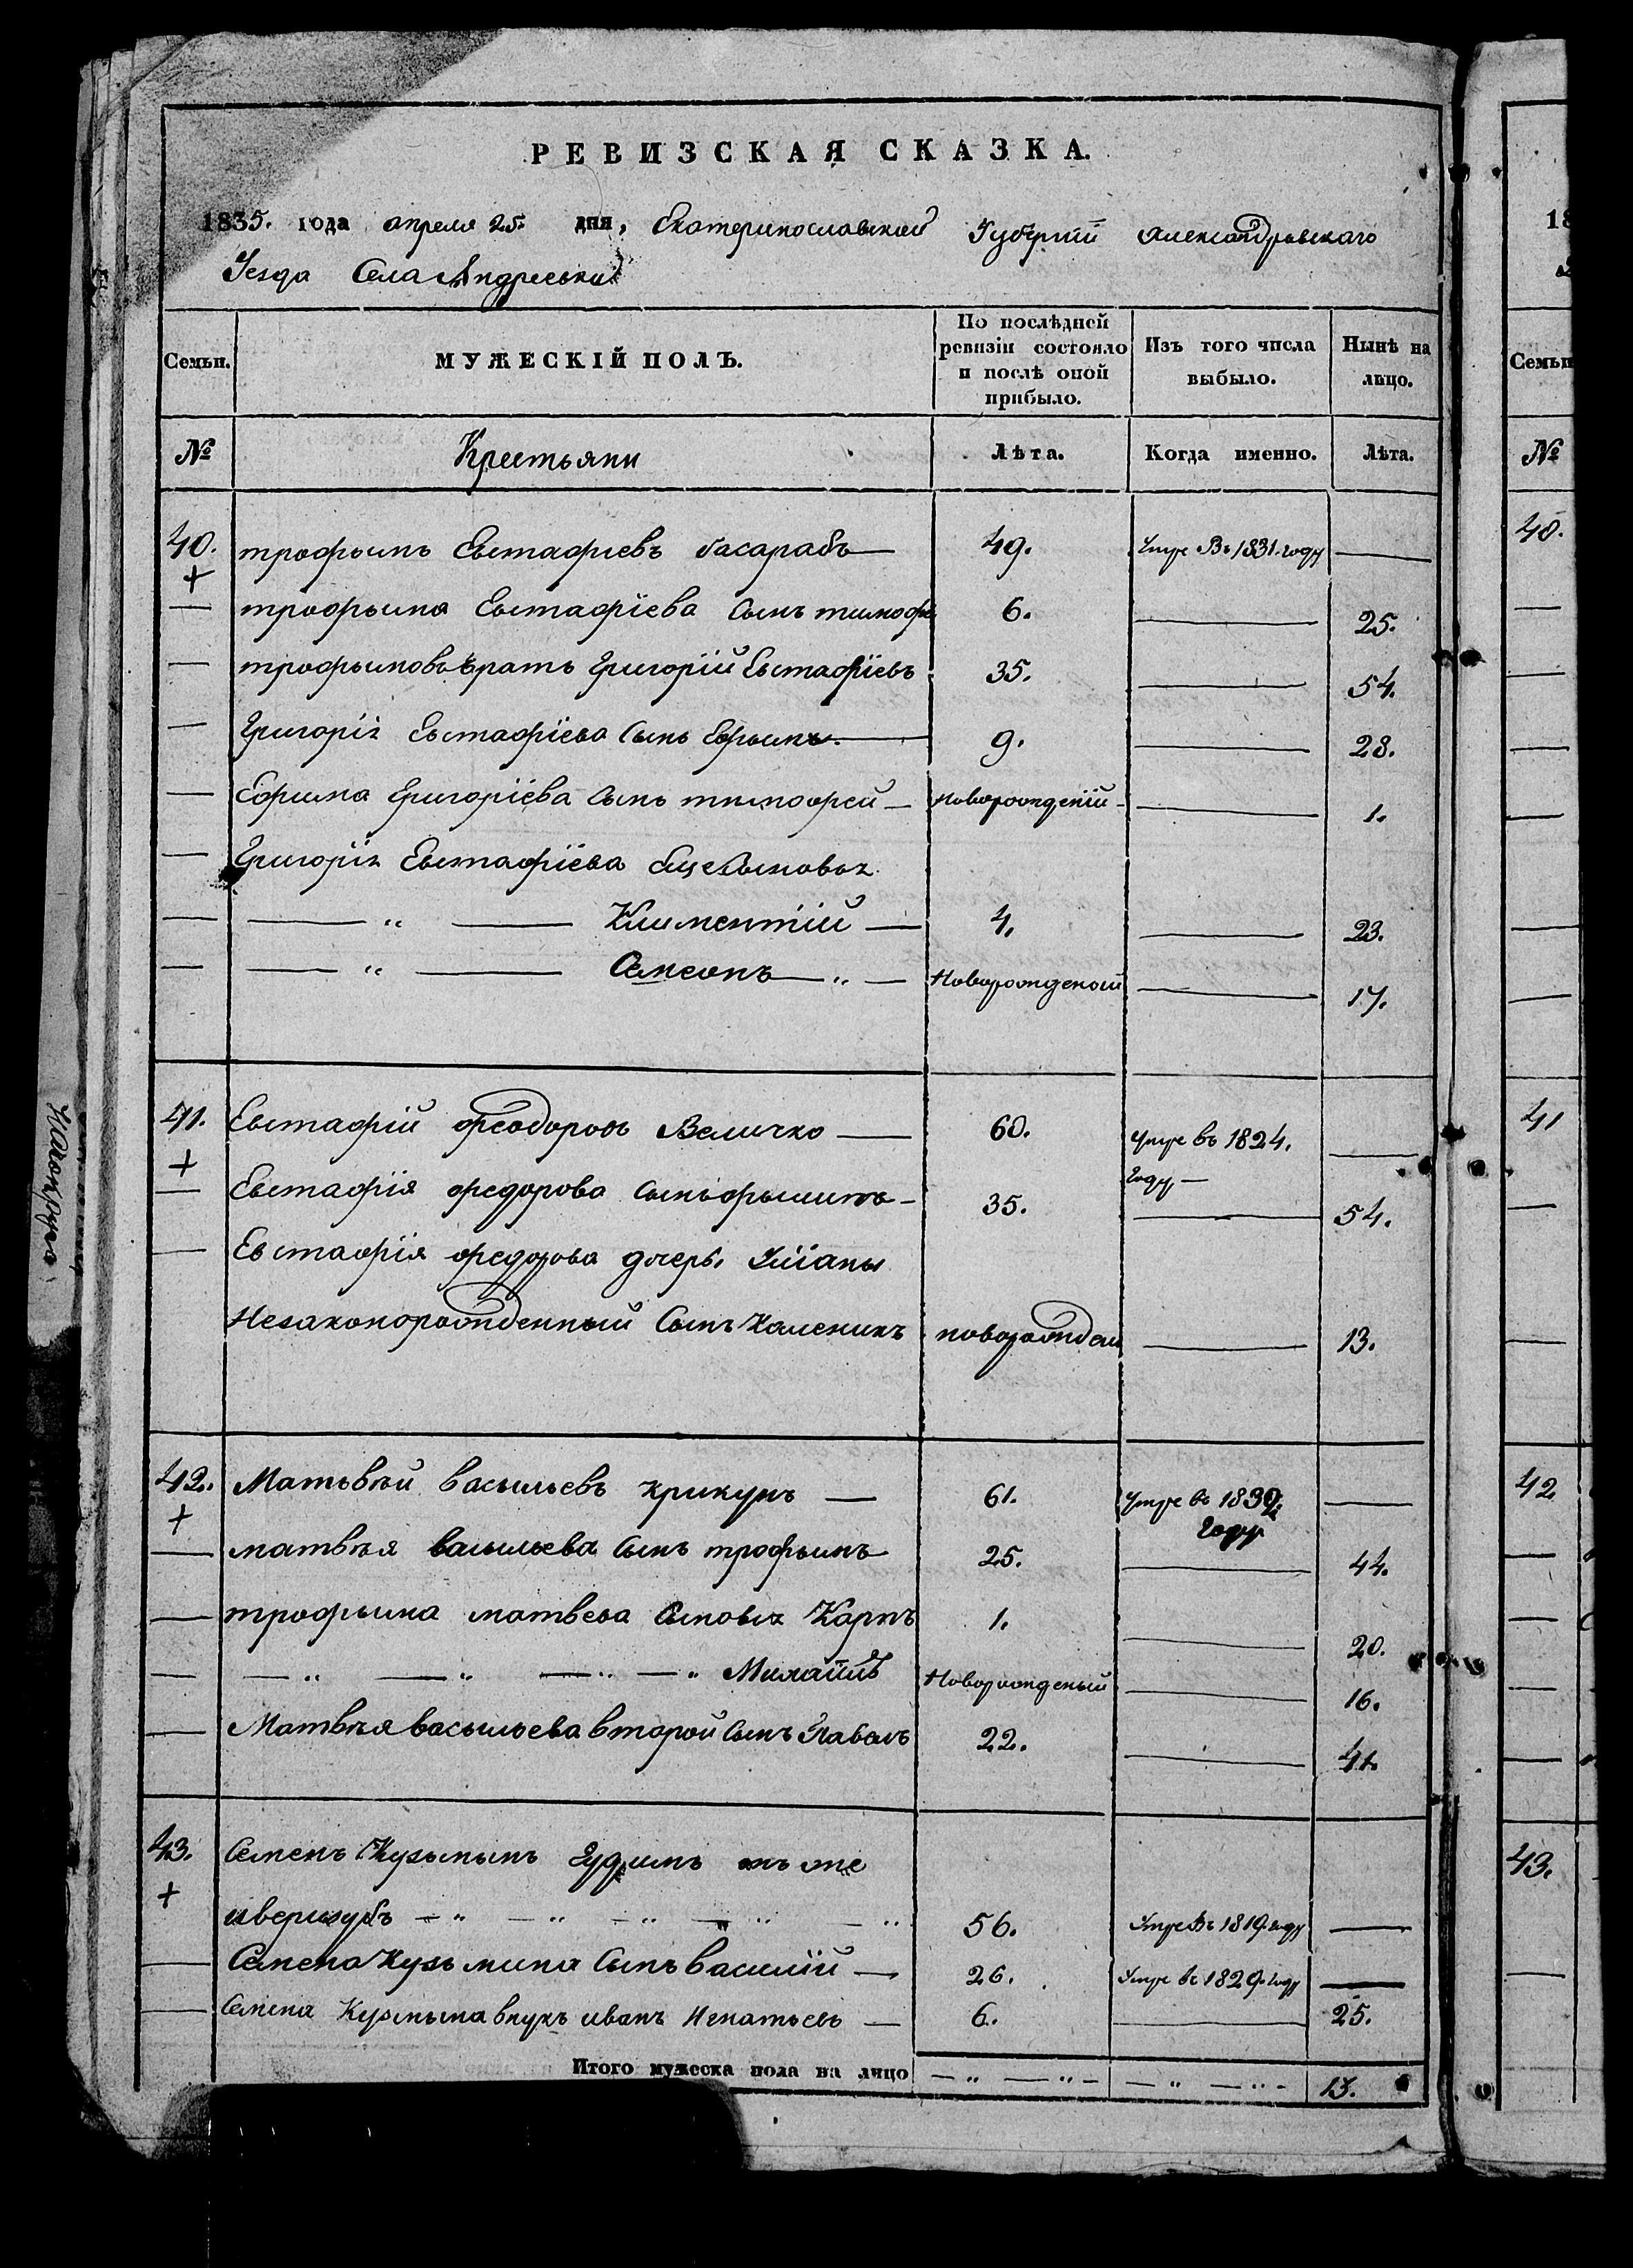 РЕВИЗСКАЯ СКАЗКА.
1835. года апреля 25. дня, Екатеринославской Губерніи Александровскаго
Уезда Села Андреевки
Семьи. МУЖЕСКІЙ ПОЛЪ. По послѣдней ревизіи состояло и послѣ оной прибыло. Изъ того числа выбыло. Нынѣ на лицо.
№ Крестьяни Лѣта. Когда именно. Лѣта.
40. трофымъ Евстафиевъ басарабъ — 49. Умре Въ 1831. году —
+
— трофыма Евстафіева Сынъ тимофе 6. — 25.
— трофымовъ братъ Григорій Евстафіевъ 35. — 54.
— Григорія Евстафіева Сынъ Ефрымъ. — 9. — 28.
— Ефима Григоріева Сынъ тимофей — Новорожденій — 1.
— Григорія Евстафіева еще Сыновья
— — „ — Климентій — 4. — 23.
— — „ — Семеонъ — „ — Новорожденый — 17.
41. Евстафій феодоровъ Величко — 60. Умре въ 1824.
+ году — —
— Евстафія федорова Сынъ фылипъ — 35. — 54.
— Евстафія федорова дочерь Уліаны
Незаконорожденный Сынъ Каленикъ новорожден — 13.
42. Матьвѣй васыльевъ крикунъ — 61. Умре въ 1830. —
+ году
— матвѣя васыльева Сынъ трофымъ 25. — 44.
— трофыма матвева Сыновья Карпъ 1. — 20.
— — „ — „ — „ — „ Михаилъ Новорожденый — 16.
— Матвѣя васыльева второй Сынъ Павелъ 22. — 41.
43. Семенъ Кузьмынъ Гудимъ онъ же
+
иверизубъ — „ — „ — „ — „ — „ 56. Умре Въ 1819. году —
— Семена Кузьмина Сынъ Василій — 26. Умре въ 1829. году —
— Семена Кузмына внукъ иванъ Игнатьевъ — 6. — 25.
Итого мужеска пола на лицо — „ — „ — — „ — „ — 13.
18
Семьи
№
40.
41
42
43.